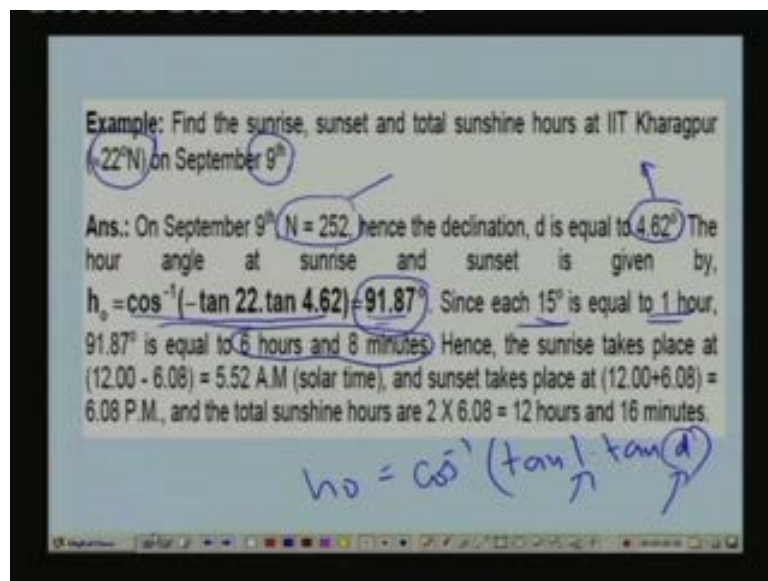 Example: Find the sunrise, sunset and total sunshine hours at IIT Kharagpur
(≈22°N) on September 9th.
Ans.: On September 9th, N = 252, hence the declination, d is equal to 4.62° The
hour angle at sunrise and sunset is given by,
h₀ = cos⁻¹(−tan 22.tan 4.62) = 91.87°. Since each 15° is equal to 1 hour,
91.87° is equal to 6 hours and 8 minutes. Hence, the sunrise takes place at
(12.00 - 6.08) = 5.52 A.M (solar time), and sunset takes place at (12.00+6.08) =
6.08 P.M., and the total sunshine hours are 2 X 6.08 = 12 hours and 16 minutes.
h0 = cos⁻¹ (tan l . tan d)